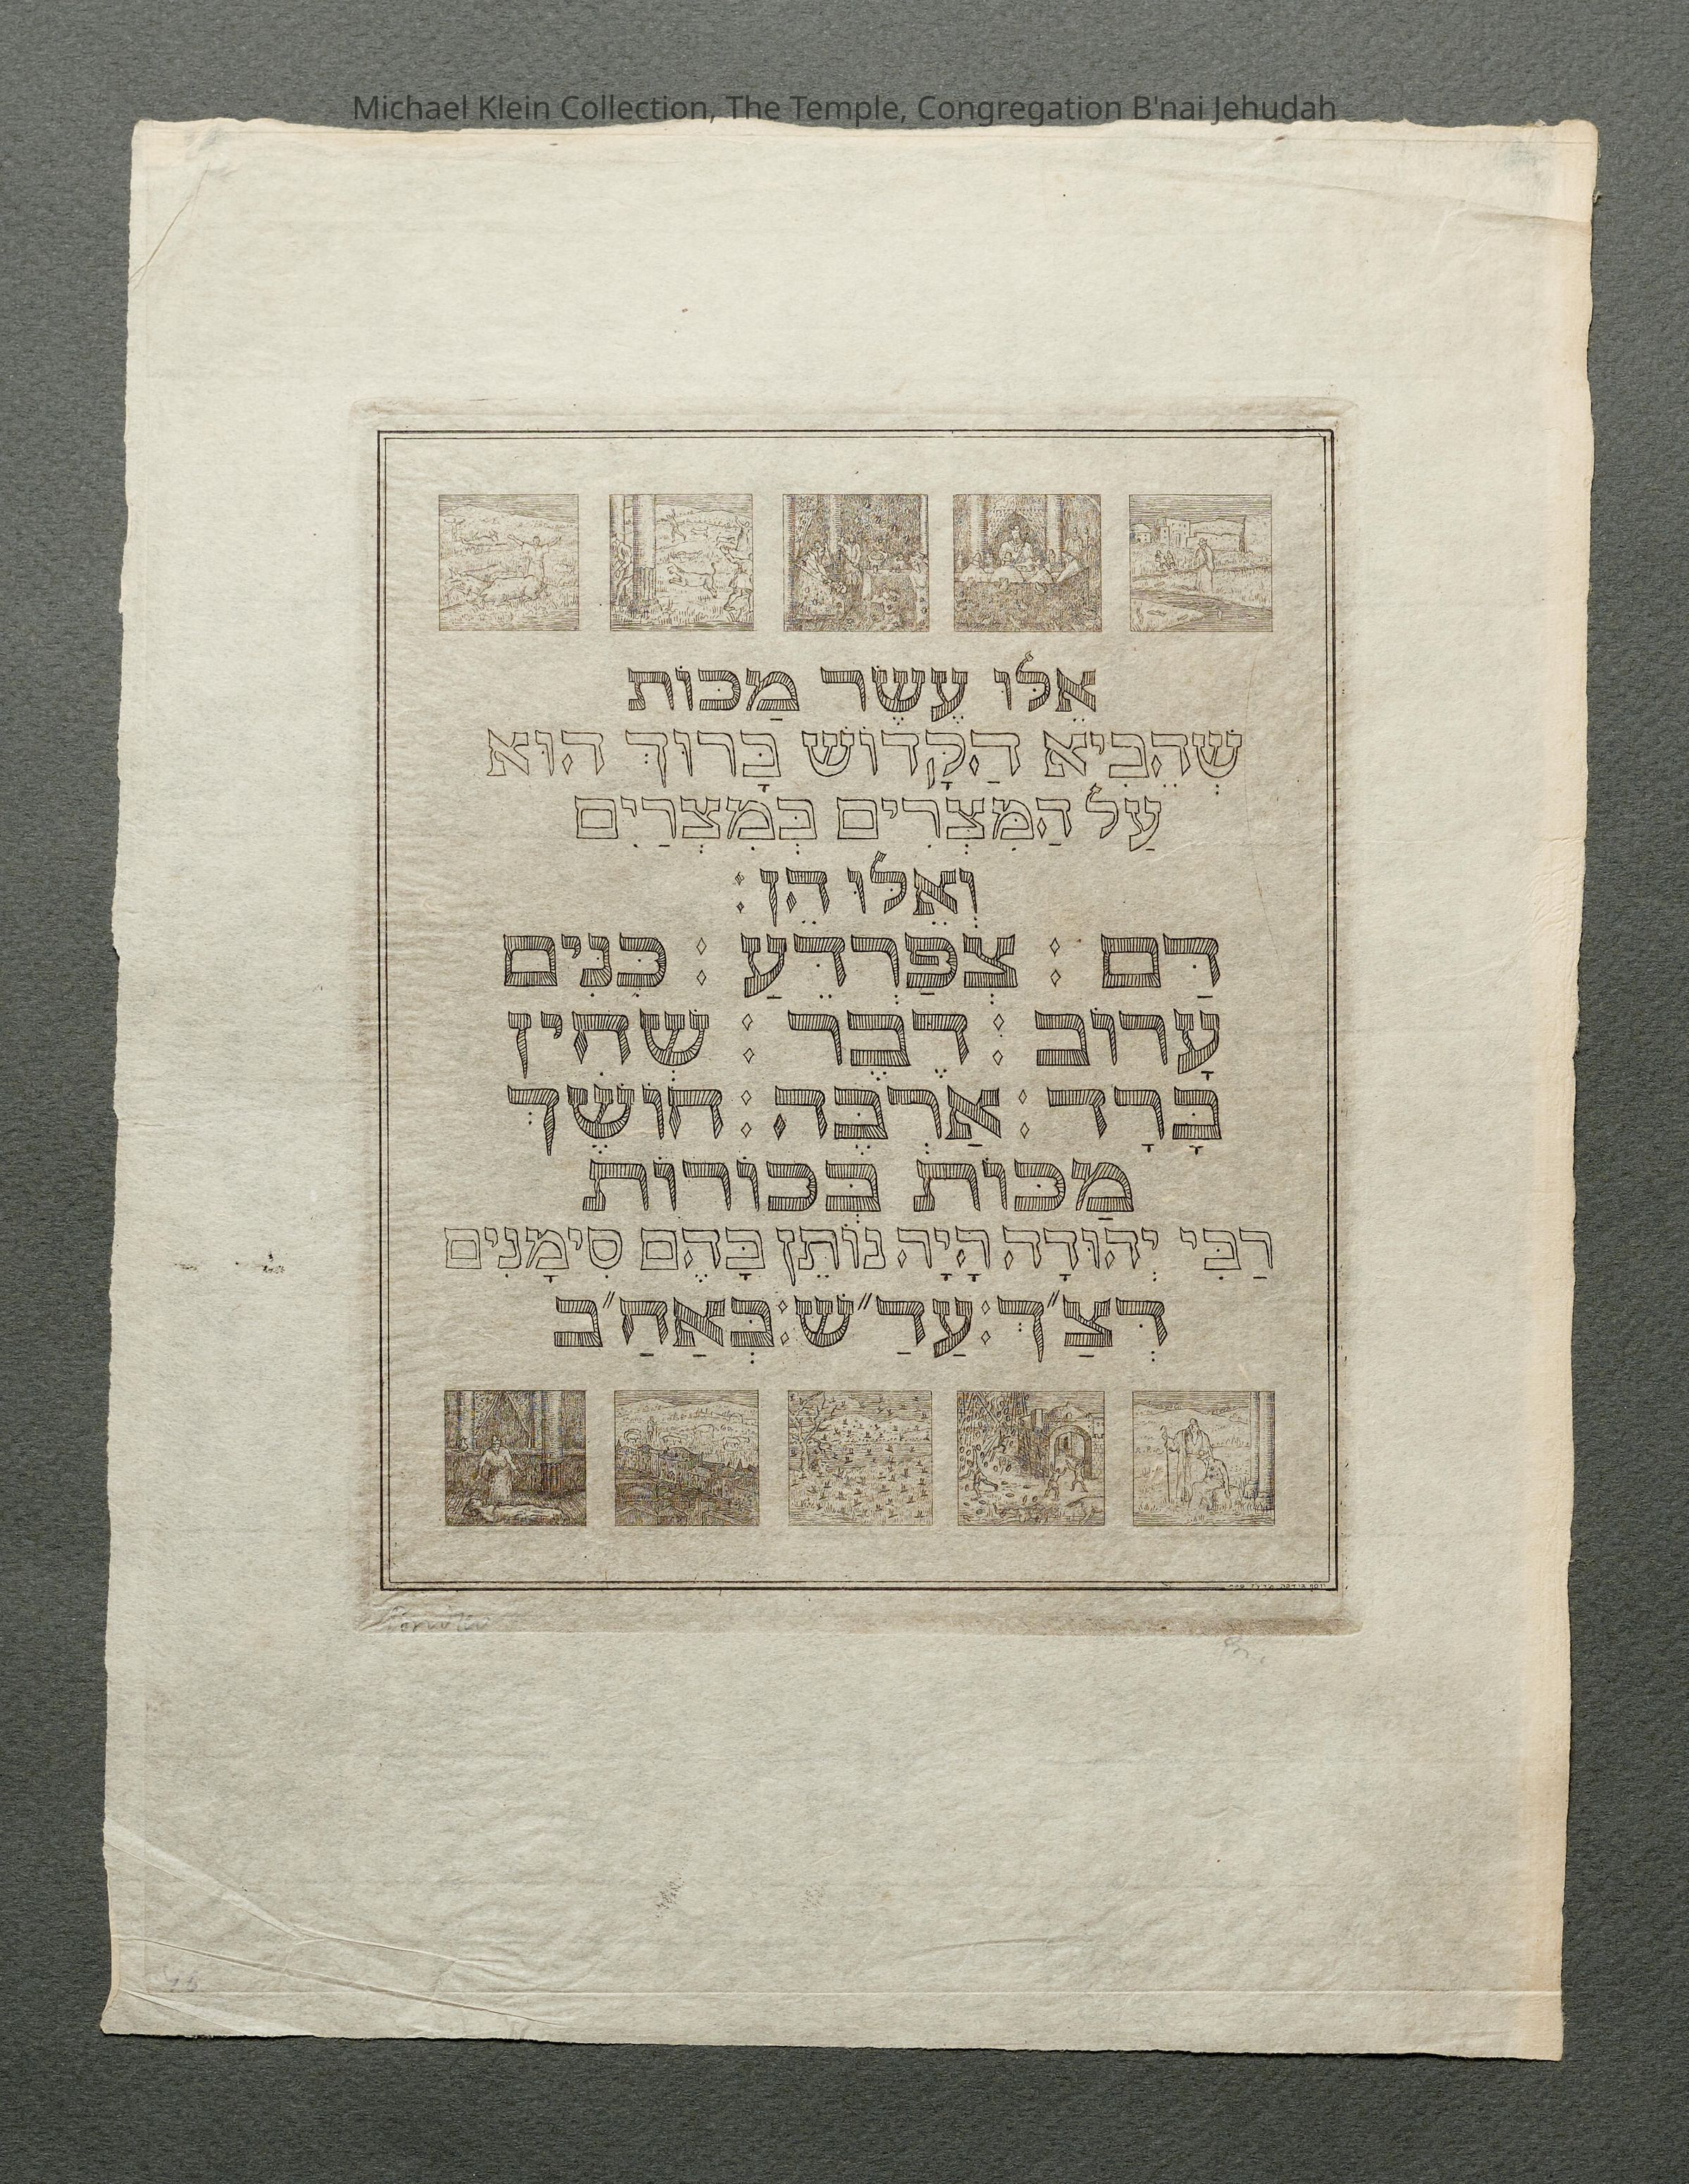 Michael Klein Collection, The Temple, Congregation B'nai Jehudah
אֵלּוּ עֶשֶׂר מַכּוֹת
שֶׁהֵבִיא הַקָּדוֹשׁ בָּרוּךְ הוּא
עַל הַמִּצְרִים בְּמִצְרַיִם
וְאֵלּוּ הֵן:
דַּם : צְפַרְדֵּעַ : כִּנִּים
עָרוֹב : דֶּבֶר : שְׁחִין
בָּרָד : אַרְבֶּה : חוֹשֶׁךְ
מַכּוֹת בְּכוֹרוֹת
רַבִּי יְהוּדָה הָיָה נוֹתֵן בָּהֶם סִימָנִים
דְּצַ״ךְ : עַדַ״שׁ : בְּאַחַ״ב